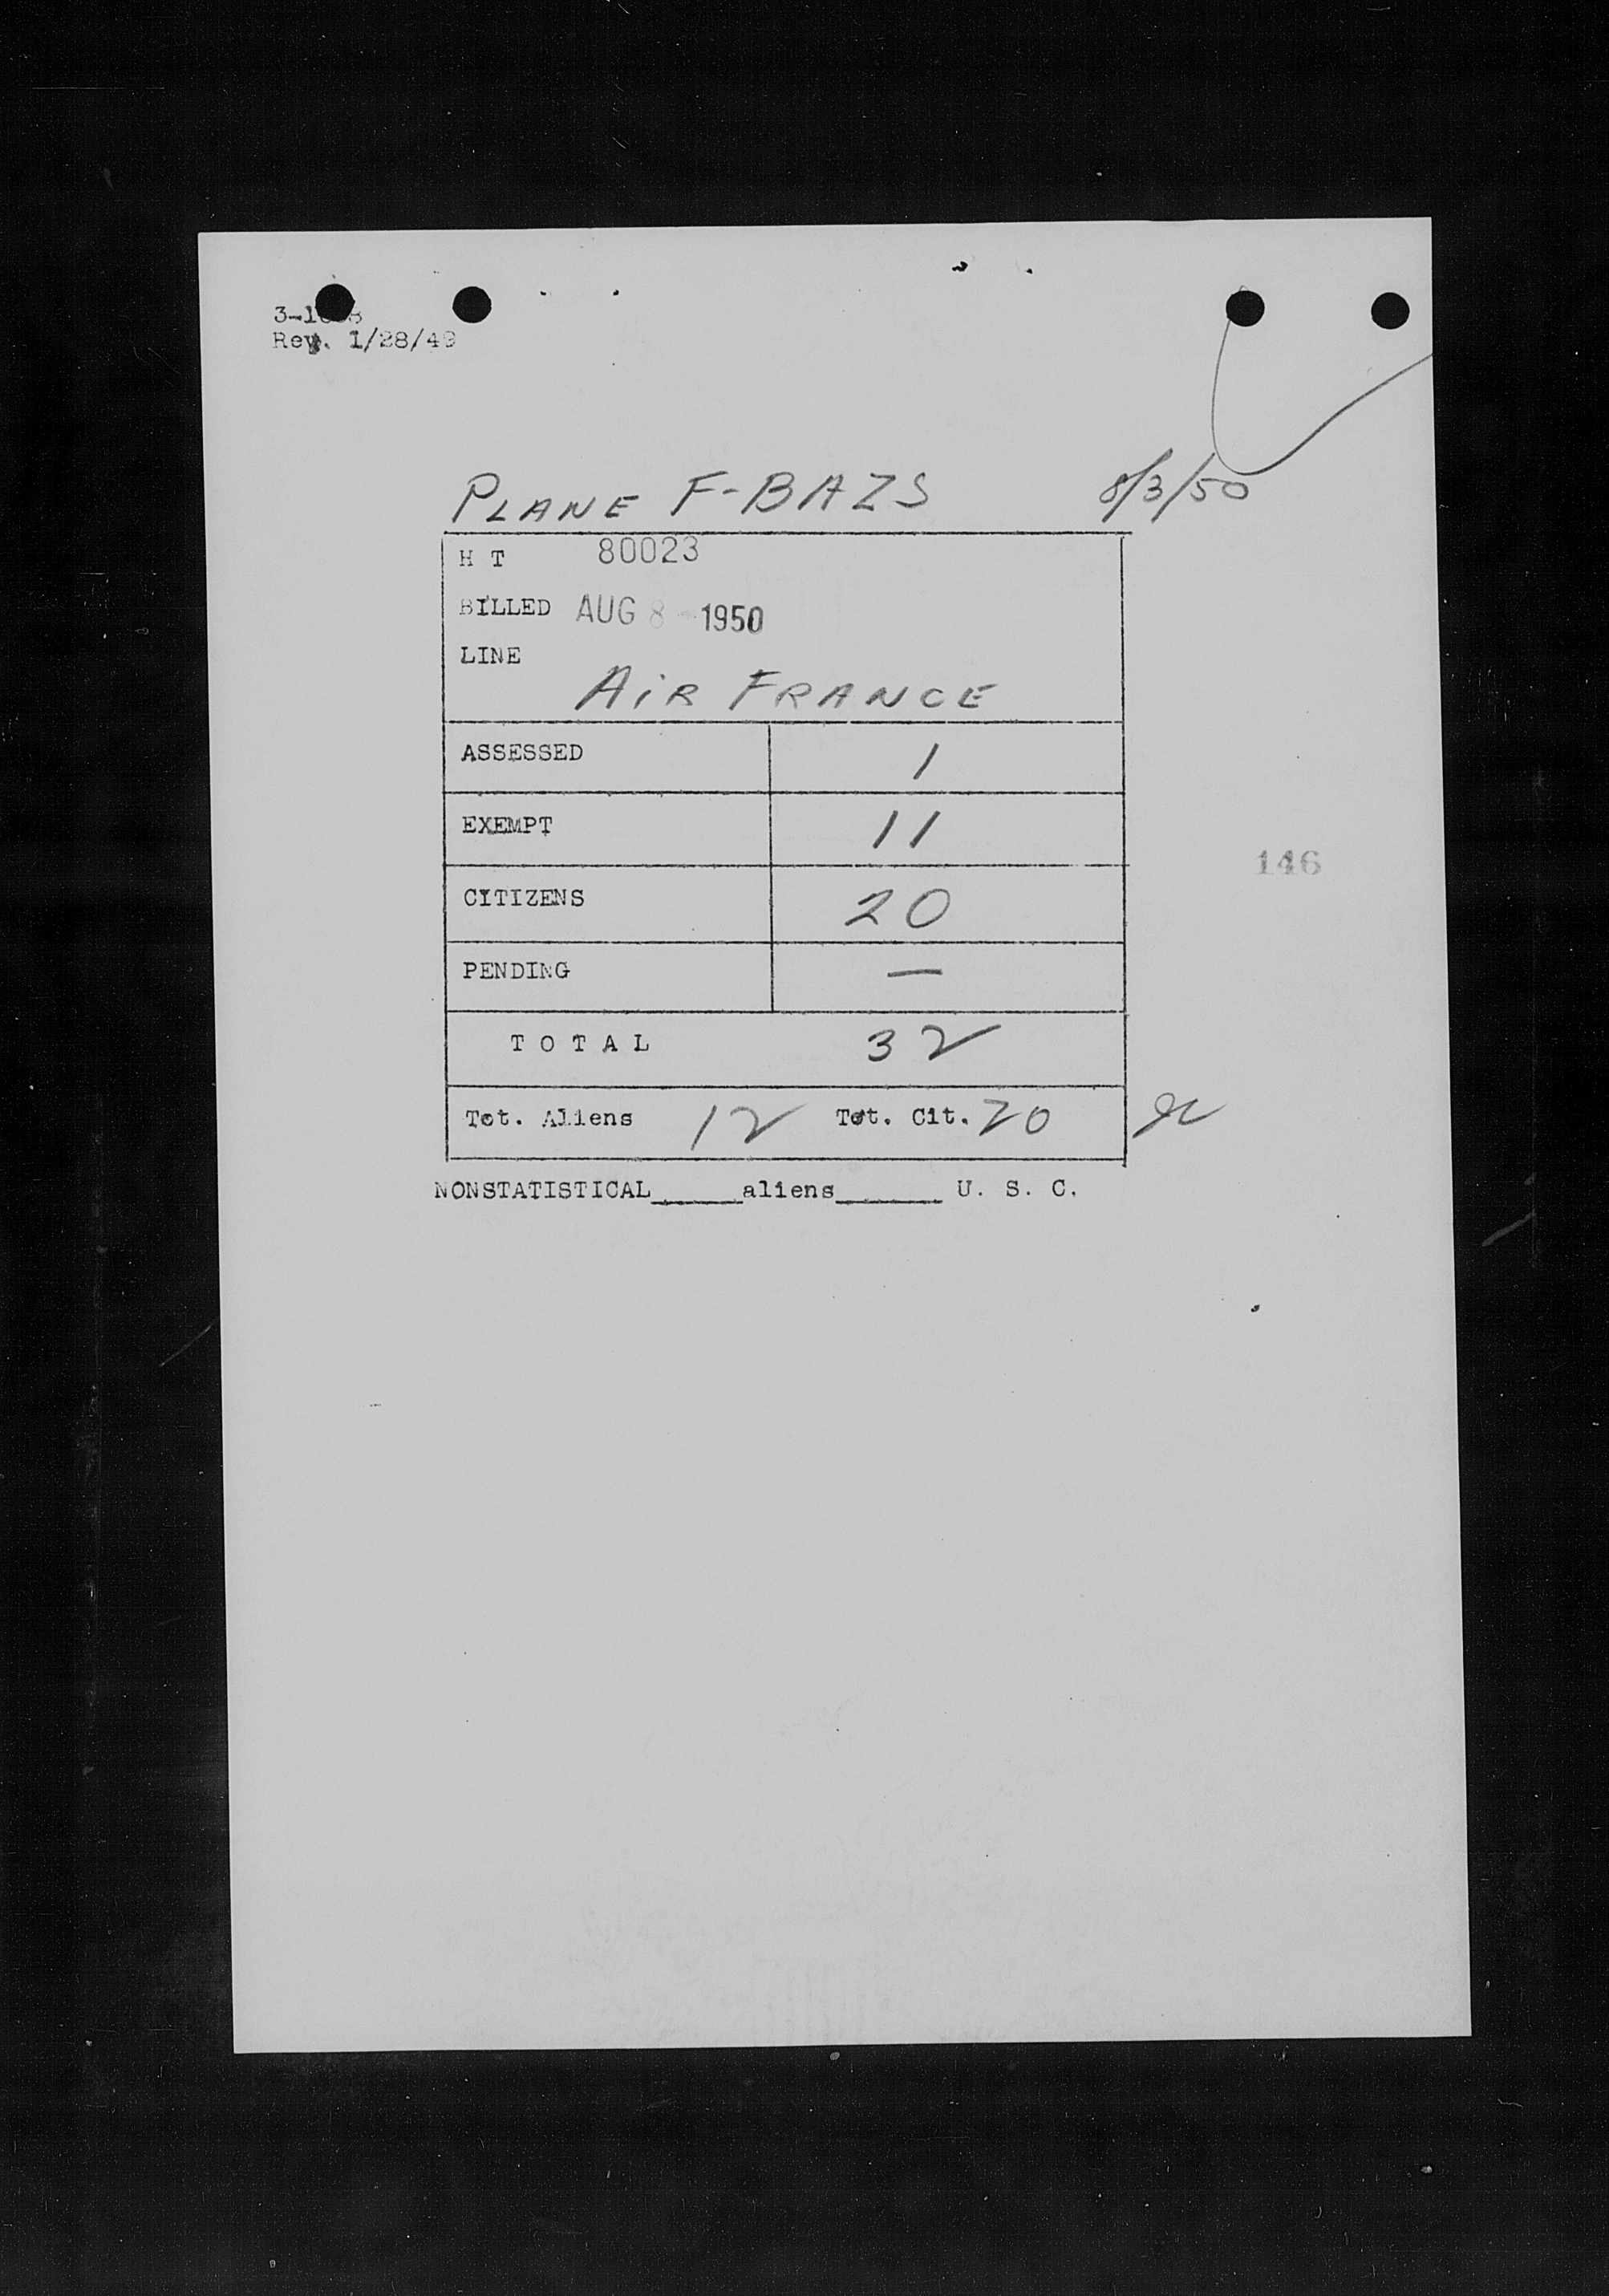 Rev. 1/28/49
PLANE F-BAZS 8/3/50
H T 80023
BILLED AUG 8 - 1950
LINE
AIR FRANCE
ASSESSED 1
EXEMPT 11
146
CITIZENS 20
PENDING —
TOTAL 32
Tot. Aliens 12 Tot. Cit. 20
NONSTATISTICAL______aliens_______ U. S. C.